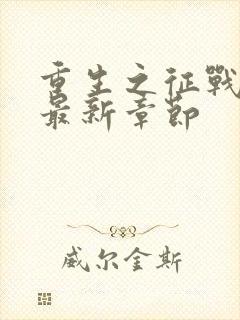 重生之征戰
最新章節
威尔金斯